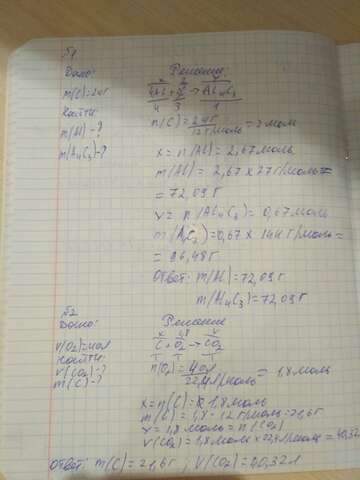 №1
Дано:
m(C)=24г
Найти:
m(Al)-?
m(Al4C3)-?
Решение:
x 2 y
4Al+3C→Al4C3
4 3 1
n(C)=24г/12г/моль=2 моль
x=n(Al)=2,67моль
m(Al)=2,67×27г/моль=
=72,09г
y=n(Al4C3)=0,67моль
m(Al4C3)=0,67×144г/моль=
=96,48г
Ответ: m(Al)=72,09г
m(Al4C3)=72,09г
№2
Дано:
V(O2)=40л
Найти:
V(CO2)-?
m(C)-?
Решение
x 1,8 y
C+O2→CO2
1 1 1
n(O2)=40л/22,4л/моль=1,8моль
x=n(C)=1,8моль
m(C)=1,8·12г/моль=21,6г
y=1,8моль=n(CO2)
V(CO2)=1,8моль×22,4л/моль=40,32
Ответ: m(C)=21,6г; V(CO2)=40,32л